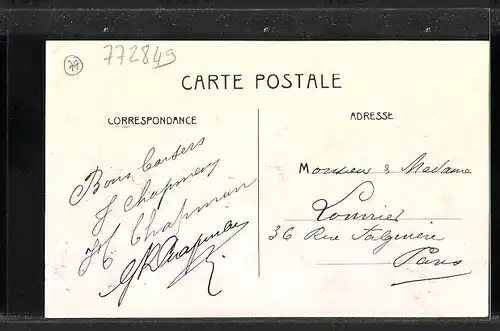 77
772849
CARTE POSTALE
CORRESPONDANCE
ADRESSE
Bons baisers
J Chapman
H Chapman
GR Chapman
Monsieur & Madame
Louvrier
36 Rue Falguière
Paris